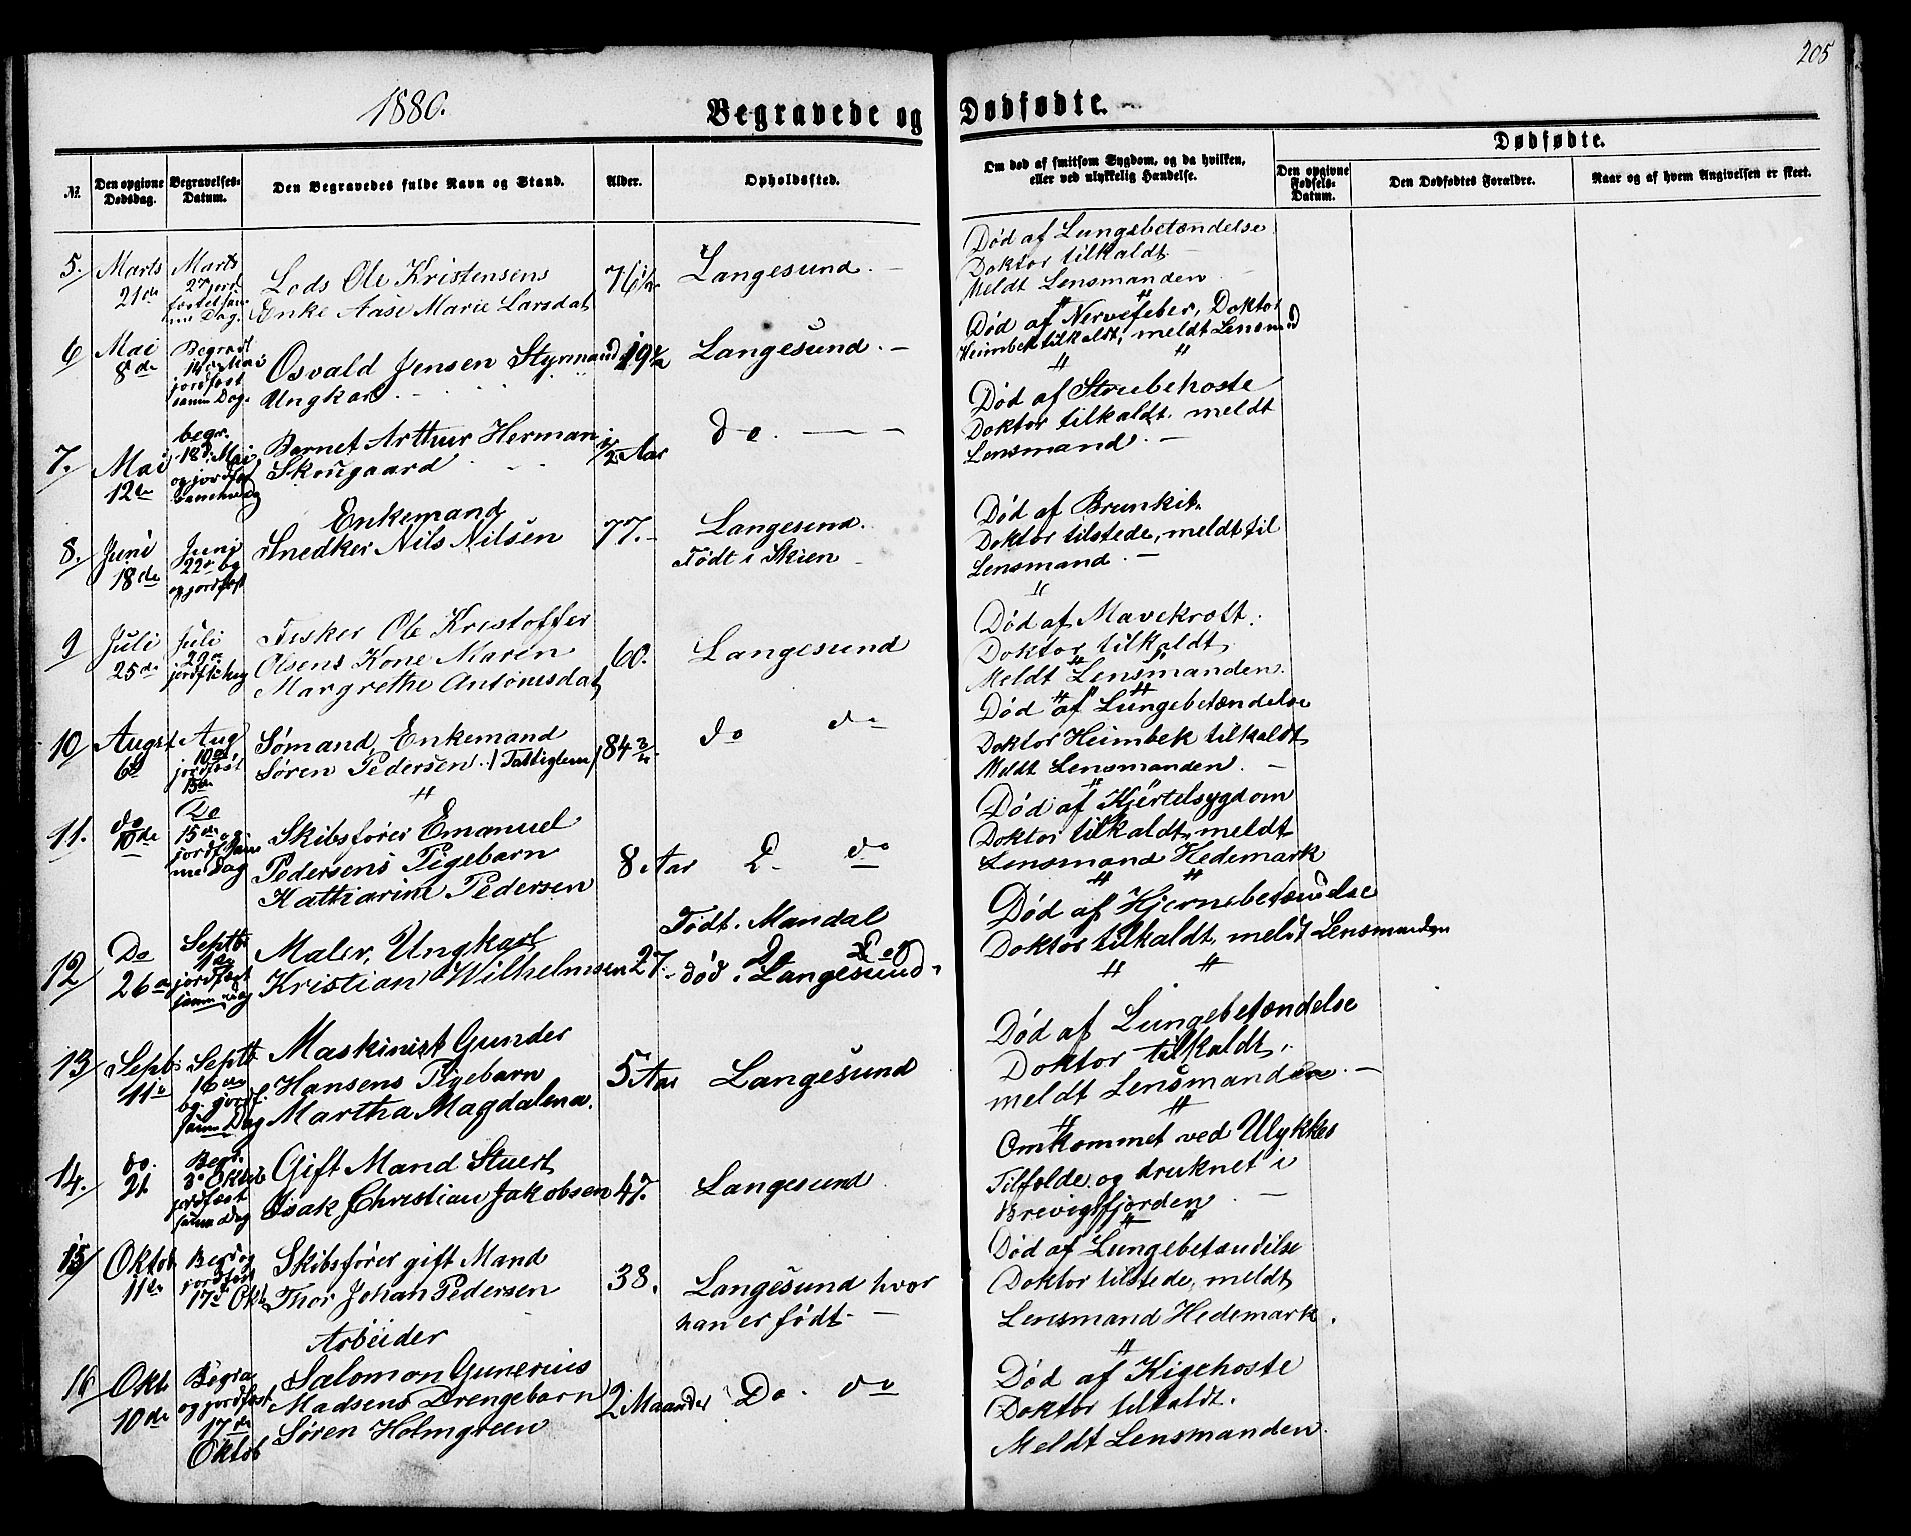 205
1880.
Begravede og Dødfødte.
Dødfødte.
№
Den opgivne Dødsdag.
Begravelses-Datum.
Den Begravedes fulde Navn og Stand.
Alder.
Opholdssted.
Om død af smitsom Sygdom, og da hvilken,
eller ved ulykkelig Hændelse.
Den opgivne Fødsels-Datum.
Den Dødfødtes Forældre.
Naar og af hvem Angivelsen er skeet.
5.
Marts
21de
Marts
27 jord
fæstet sam
me Dag.
Lods Ole Kristensens
Enke Aase Marie Larsdat
76 1/2
Langesund. —
Død af Lungebetændelse
Doktor tilkaldt
Meldt Lensmanden
6
Mai
8de
Begravt
14de Mai
jordfæst
samm Dag.
Osvald Jensen Styrmand
Ungkarl.
19 1/2
Langesund. —
Død af Nervefeber, Doktor
Heimbek tilkaldt, meldt Lensmand
7.
Mai
12te
begr.
18d. Mai
og jordfæst
samme Dag
Barnet Arthur Herman
Skougaard
1/2 Aar
do. — —
Død af Strubehoste
Doktor tilkaldt. meldt
Lensmand. —
8.
Juni
18de
Juni
22de bg
og jordfæst
Enkemand
Snedker Nils Nilsen
77. -
Langesund.
Født i Skien
Død af Brunkit.
Doktor tilstede, meldt til
Lensmand. —
9
Juli
25de
Juli
29de
Fisker Ole Kristoffer
Olsens Kone Maren
Margrethe Antonisdat
60.
Langesund
Død af Mavekræft.
Doktor tilkaldt
Meldt Lensmanden.
10
Augst
6te
Aug
10de
jordfæst
15de
Sømand, Enkemand
Søren Pedersen. (Fattiglem)
84
do do
Død af Lungebetændelse
Doktor Heimbek tilkaldt
Meldt Lensmanden. —
11.
do
10de
Do
15de og
jordf. sam
me Dag
Skibsfører Emanuel
Pedersens Pigebarn
Kathrine Pedersen
8 Aar
D. do
Død af Kjertelsygdom
Doktor tilkaldt, meldt
Lensmand Hedemark
12
Do
26de
Septb.
1ste
jordfæst
samm Dag
Maler, Ungkarl
Kristian Wilhelmsen
27.
Født. Mandal
død i Langesund.
Død af Hjernebetændelse
Doktor tilkaldt, meldt Lensmanden
13
Septb.
11te
Septb.
16de
bg. jordf.
samm Dag
Maskinist Gunder
Hansens Pigebarn
Martha Magdalena.
5 Aar
Langesund
Død af Lungebetændelse
Doktor tilkaldt.
meldt Lensmanden. —
14.
do.
21
Begr.
3de Oktob
jordfæst
samme Dag
Gift Mand Stuert
Isak Christian Jakobsen
47.
Langesund
Omkommet ved Ulykkes
Tilfælde og druknet i
Brevigsfjorden. —
15
Oktob
11te
Begr og
jordfæst
17d Oktb
Skibsfører gift Mand
Thor Johan Pedersen
38.
Langesund hvor
han er født. —
Død af Lungebetændelse
Doktor tilstede, meldt
Lensmand Hedemark.
16
Okt.
10de
Begra
og jordfæst
17de
Oktob
Arbeider
Salomon Gunerius
Madsens Drengebarn
Søren Holmgreen
2 Maaneder
Do. do
Død af Kigehoste
Doktor tilkaldt.
Meldt Lensmanden.